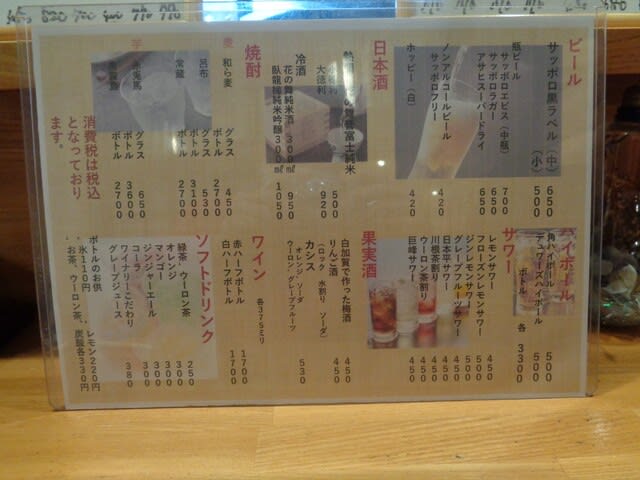 ビール
サッポロ黒ラベル（中） 650
（小） 500
瓶ビール
サッポロエビス（中瓶） 700
サッポロラガー 650
アサヒスーパードライ 650
ノンアルコールビール
サッポロフリー 420
ホッピー（白） 420
日本酒
富士純米
500
大徳利 920
冷酒
花の舞純米酒 300㎖ 950
純米吟醸300㎖ 1050
焼酎
麦
和ら麦 グラス 450
ボトル 2700
呂布 グラス 530
ボトル 3100
常蔵 ボトル 2700
芋
グラス 650
ボトル 3600
ボトル 2700
消費税は税込
となっており
ます。
ハイボール
角ハイボール 500
デュワーズハイボール 500
ボトル 各3300
サワー
レモンサワー 450
フローズンレモンサワー 500
ジンレモンサワー 500
グレープフルーツサワー 500
日本平サワー 450
川根茶割り 450
ウーロン茶割り 450
巨峰サワー 450
果実酒
白加賀で作った梅酒 450
りんご酒 450
（ロック 水割り ソーダ）
カシス 530
オレンジ ソーダ
ウーロン グレープフルーツ
ワイン
各375ミリ
赤ハーフボトル 1700
白ハーフボトル 1700
ソフトドリンク
緑茶 ウーロン茶 250
オレンジ 300
マンゴー 300
ジンジャーエール 300
コーラ 300
ワイナリーこだわり
グレープジュース 380
ボトルのお供
氷110円 レモン220円
お茶、ウーロン茶、炭酸各330円